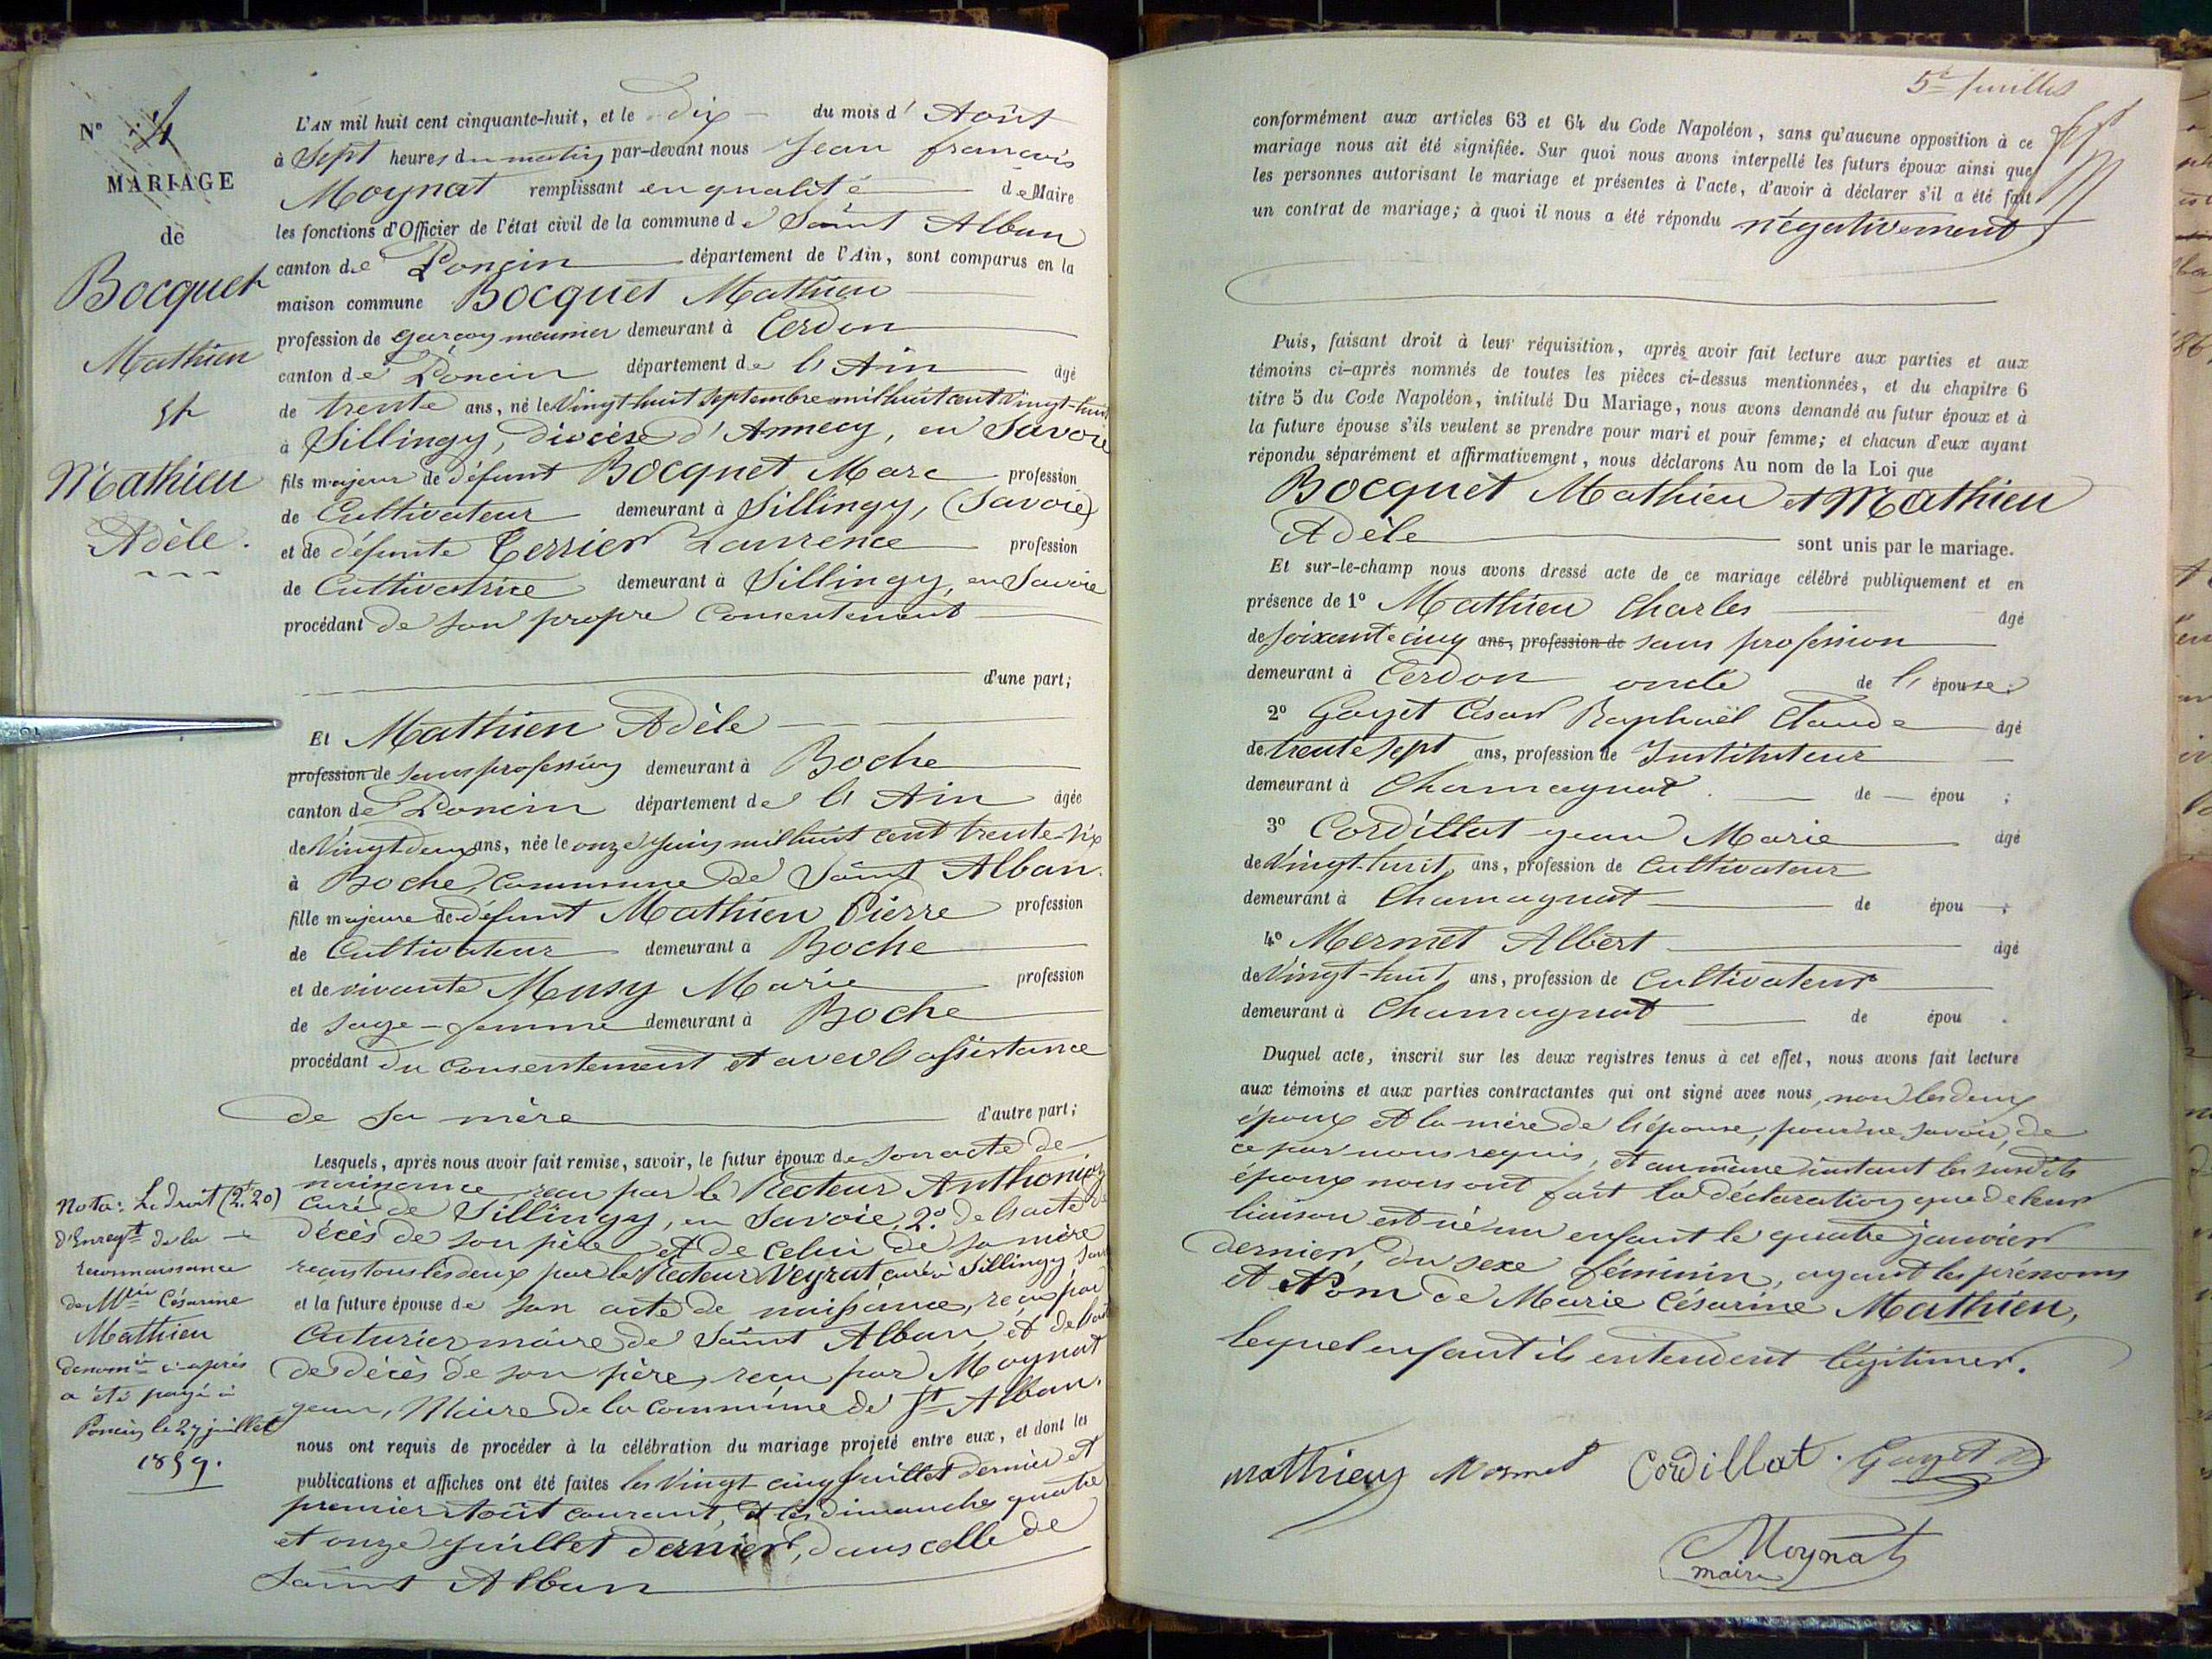 N° 4
MARIAGE
de
Bocquet
Mathieu
et
Mathieu
Adèle.
L'AN mil huit cent cinquante-huit, et le dix du mois d' Août
à Sept heures du matin par-devant nous Jean francois
Moynat remplissant en qualité de Maire
les fonctions d'Officier de l'état civil de la commune de Saint Alban
canton de Poncin département de l'Ain, sont comparus en la
maison commune Bocquet Mathieu
profession de garçon meunier demeurant à Cerdon
canton de Poncin département de l'Ain âgé
de trente ans, né le Vingt-huit Septembre mil huit cent Vingt-huit
à Sillingy, diocèse d'Annecy, en Savoie
fils majeur de défunt Bocquet Marc profession
de Cultivateur demeurant à Sillingy, (Savoie)
et de défunte Terrier Laurence profession
de Cultivatrice demeurant à Sillingy, en Savoie
procédant de son propre Consentement
d'une part;
Et Mathieu Adèle
profession de sans profession demeurant à Boche
canton de Poncin département de l'Ain âgée
de Vingt-deux ans, née le onze Juin mil huit cent trente-six
à Boche, Commune de Saint Alban.
fille majeure de défunt Mathieu Pierre profession
de Cultivateur demeurant à Boche
et de vivante Musy Marie profession
de sage-femme demeurant à Boche
procédant du Consentement et avec l'assistance
de sa mère d'autre part;
Lesquels, après nous avoir fait remise, savoir, le futur époux de son acte de
naissance reçu par le Recteur Anthonioz
Curé de Sillingy, en Savoie, 2° de l'acte de
décès de son père et de celui de sa mère
reçus tous les deux par le Recteur Veyrat curé à Sillingy,
et la future épouse de son acte de naissance, reçu par
Cuturier maire de Saint Alban, et de l'acte
de décès de son père, reçu par Moynat
jean, Maire de la Commune de St Alban.
nous ont requis de procéder à la célébration du mariage projeté entre eux, et dont les
publications et affiches ont été faites les Vingt-cinq Juillet dernier et
premier Août courant, et les dimanches quatre
et onze Juillet dernier, dans celle de
Saint Alban
Nota: Le droit (2f.20)
d'Enregt de la
reconnaissance
de Mie Césarine
Mathieu
dénomée ci-après
a été payé à
Poncin le 27 juillet
1859.
5e feuillet
conformément aux articles 63 et 64 du Code Napoléon, sans qu'aucune opposition à ce
mariage nous ait été signifiée. Sur quoi nous avons interpellé les futurs époux ainsi que
les personnes autorisant le mariage et présentes à l'acte, d'avoir à déclarer s'il a été fait
un contrat de mariage; à quoi il nous a été répondu négativement
Puis, faisant droit à leur réquisition, après avoir fait lecture aux parties et aux
témoins ci-après nommés de toutes les pièces ci-dessus mentionnées, et du chapitre 6
titre 5 du Code Napoléon, intitulé Du Mariage, nous avons demandé au futur époux et à
la future épouse s'ils veulent se prendre pour mari et pour femme; et chacun d'eux ayant
répondu séparément et affirmativement, nous déclarons Au nom de la Loi que
Bocquet Mathieu et Mathieu
Adèle sont unis par le mariage.
Et sur-le-champ nous avons dressé acte de ce mariage célébré publiquement et en
présence de 1° Mathieu Charles âgé
de soixante-cinq ans, profession de sans profession
demeurant à Cerdon oncle de l'épouse;
2° Goyet César Raphaël Claude âgé
de trente sept ans, profession de Instituteur
demeurant à Chamagnat de épou ;
3° Cordillat jean Marie âgé
de Vingt-huit ans, profession de Cultivateur
demeurant à Chamagnat de épou ;
4° Mermet Albert âgé
de Vingt-huit ans, profession de Cultivateur
demeurant à Chamagnat de épou .
Duquel acte, inscrit sur les deux registres tenus à cet effet, nous avons fait lecture
aux témoins et aux parties contractantes qui ont signé avec nous, non les deux
époux et la mère de l'épouse, pour ne savoir, de
ce par nous requis, et au même instant les susdits
époux nous ont fait la déclaration que de leur
liaison est né un enfant le quatre janvier
dernier, du sexe féminin, ayant les prénoms
et Nom de Marie Césarine Mathieu,
lequel enfant ils entendent légitimer.
Mathieu Mermet Cordillat. Goyet
Moynat
maire